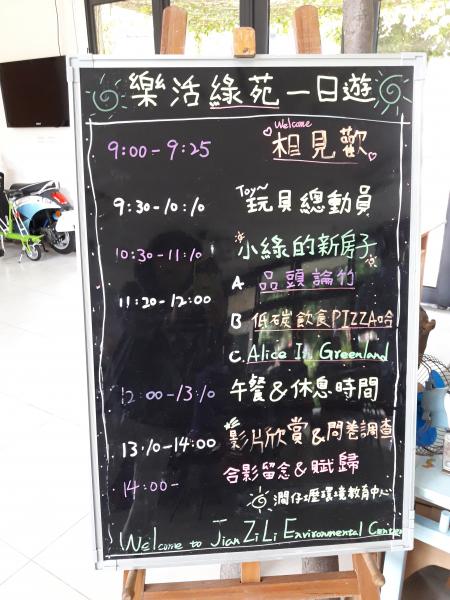 樂活綠苑一日遊
Welcome
9:00-9:25 相見歡
Toy~
9:30-10:10 玩具總動員
10:30-11:10 小綠的新房子
A 品頭論竹
11:20-12:00
B 低碳飲食PIZZA哈
C. Alice In Greenland
12:00-13:10 午餐&休息時間
13:10-14:00 影片欣賞&問卷調查
14:00- 合影留念&賦歸
澗仔壢環境教育中心
Welcome to JianZiLi Environmental Center